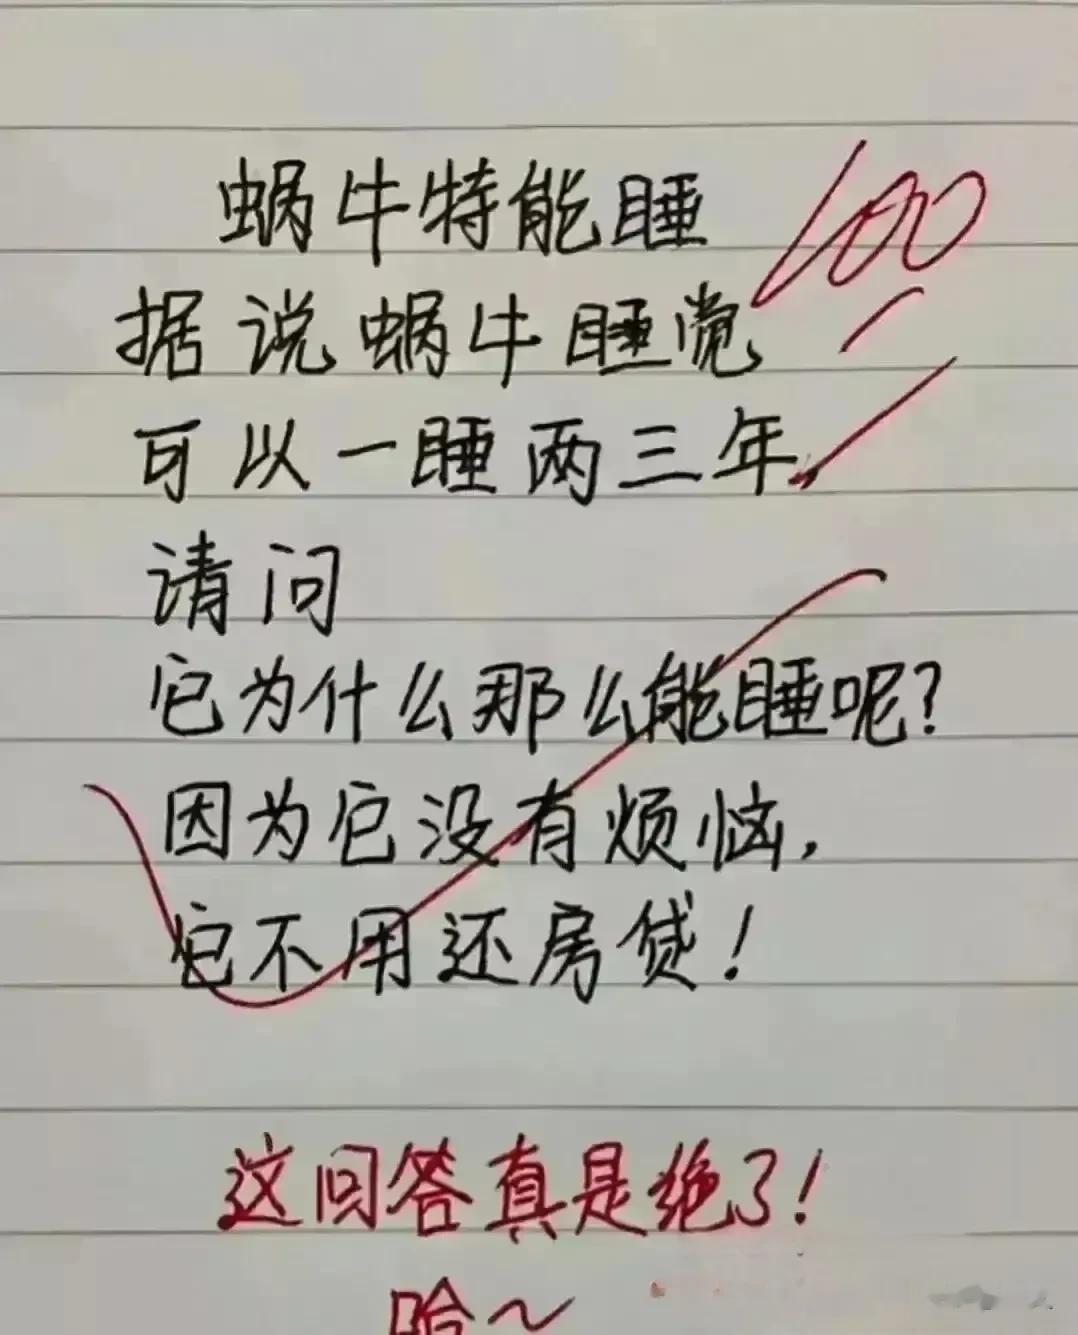 蜗牛特能睡
100
据说蜗牛睡觉
可以一睡两三年,
请问
它为什么那么能睡呢?
因为它没有烦恼,
它不用还房贷!
这回答真是绝了!
哈~